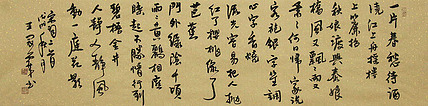 一片春愁待酒
澆江上舟搖樓
上簾招
秋娘渡與泰娘
橋風又飄飄雨又
蕭蕭何日歸家洗
客袍銀字笙調
心字香燒
流光容易把人拋
紅了櫻桃綠了
芭蕉
門外綠陰千頃
兩兩黃鸝相應
睡起不勝情行到
碧梧金井
人靜人靜風
動一庭花影
宋詞二首